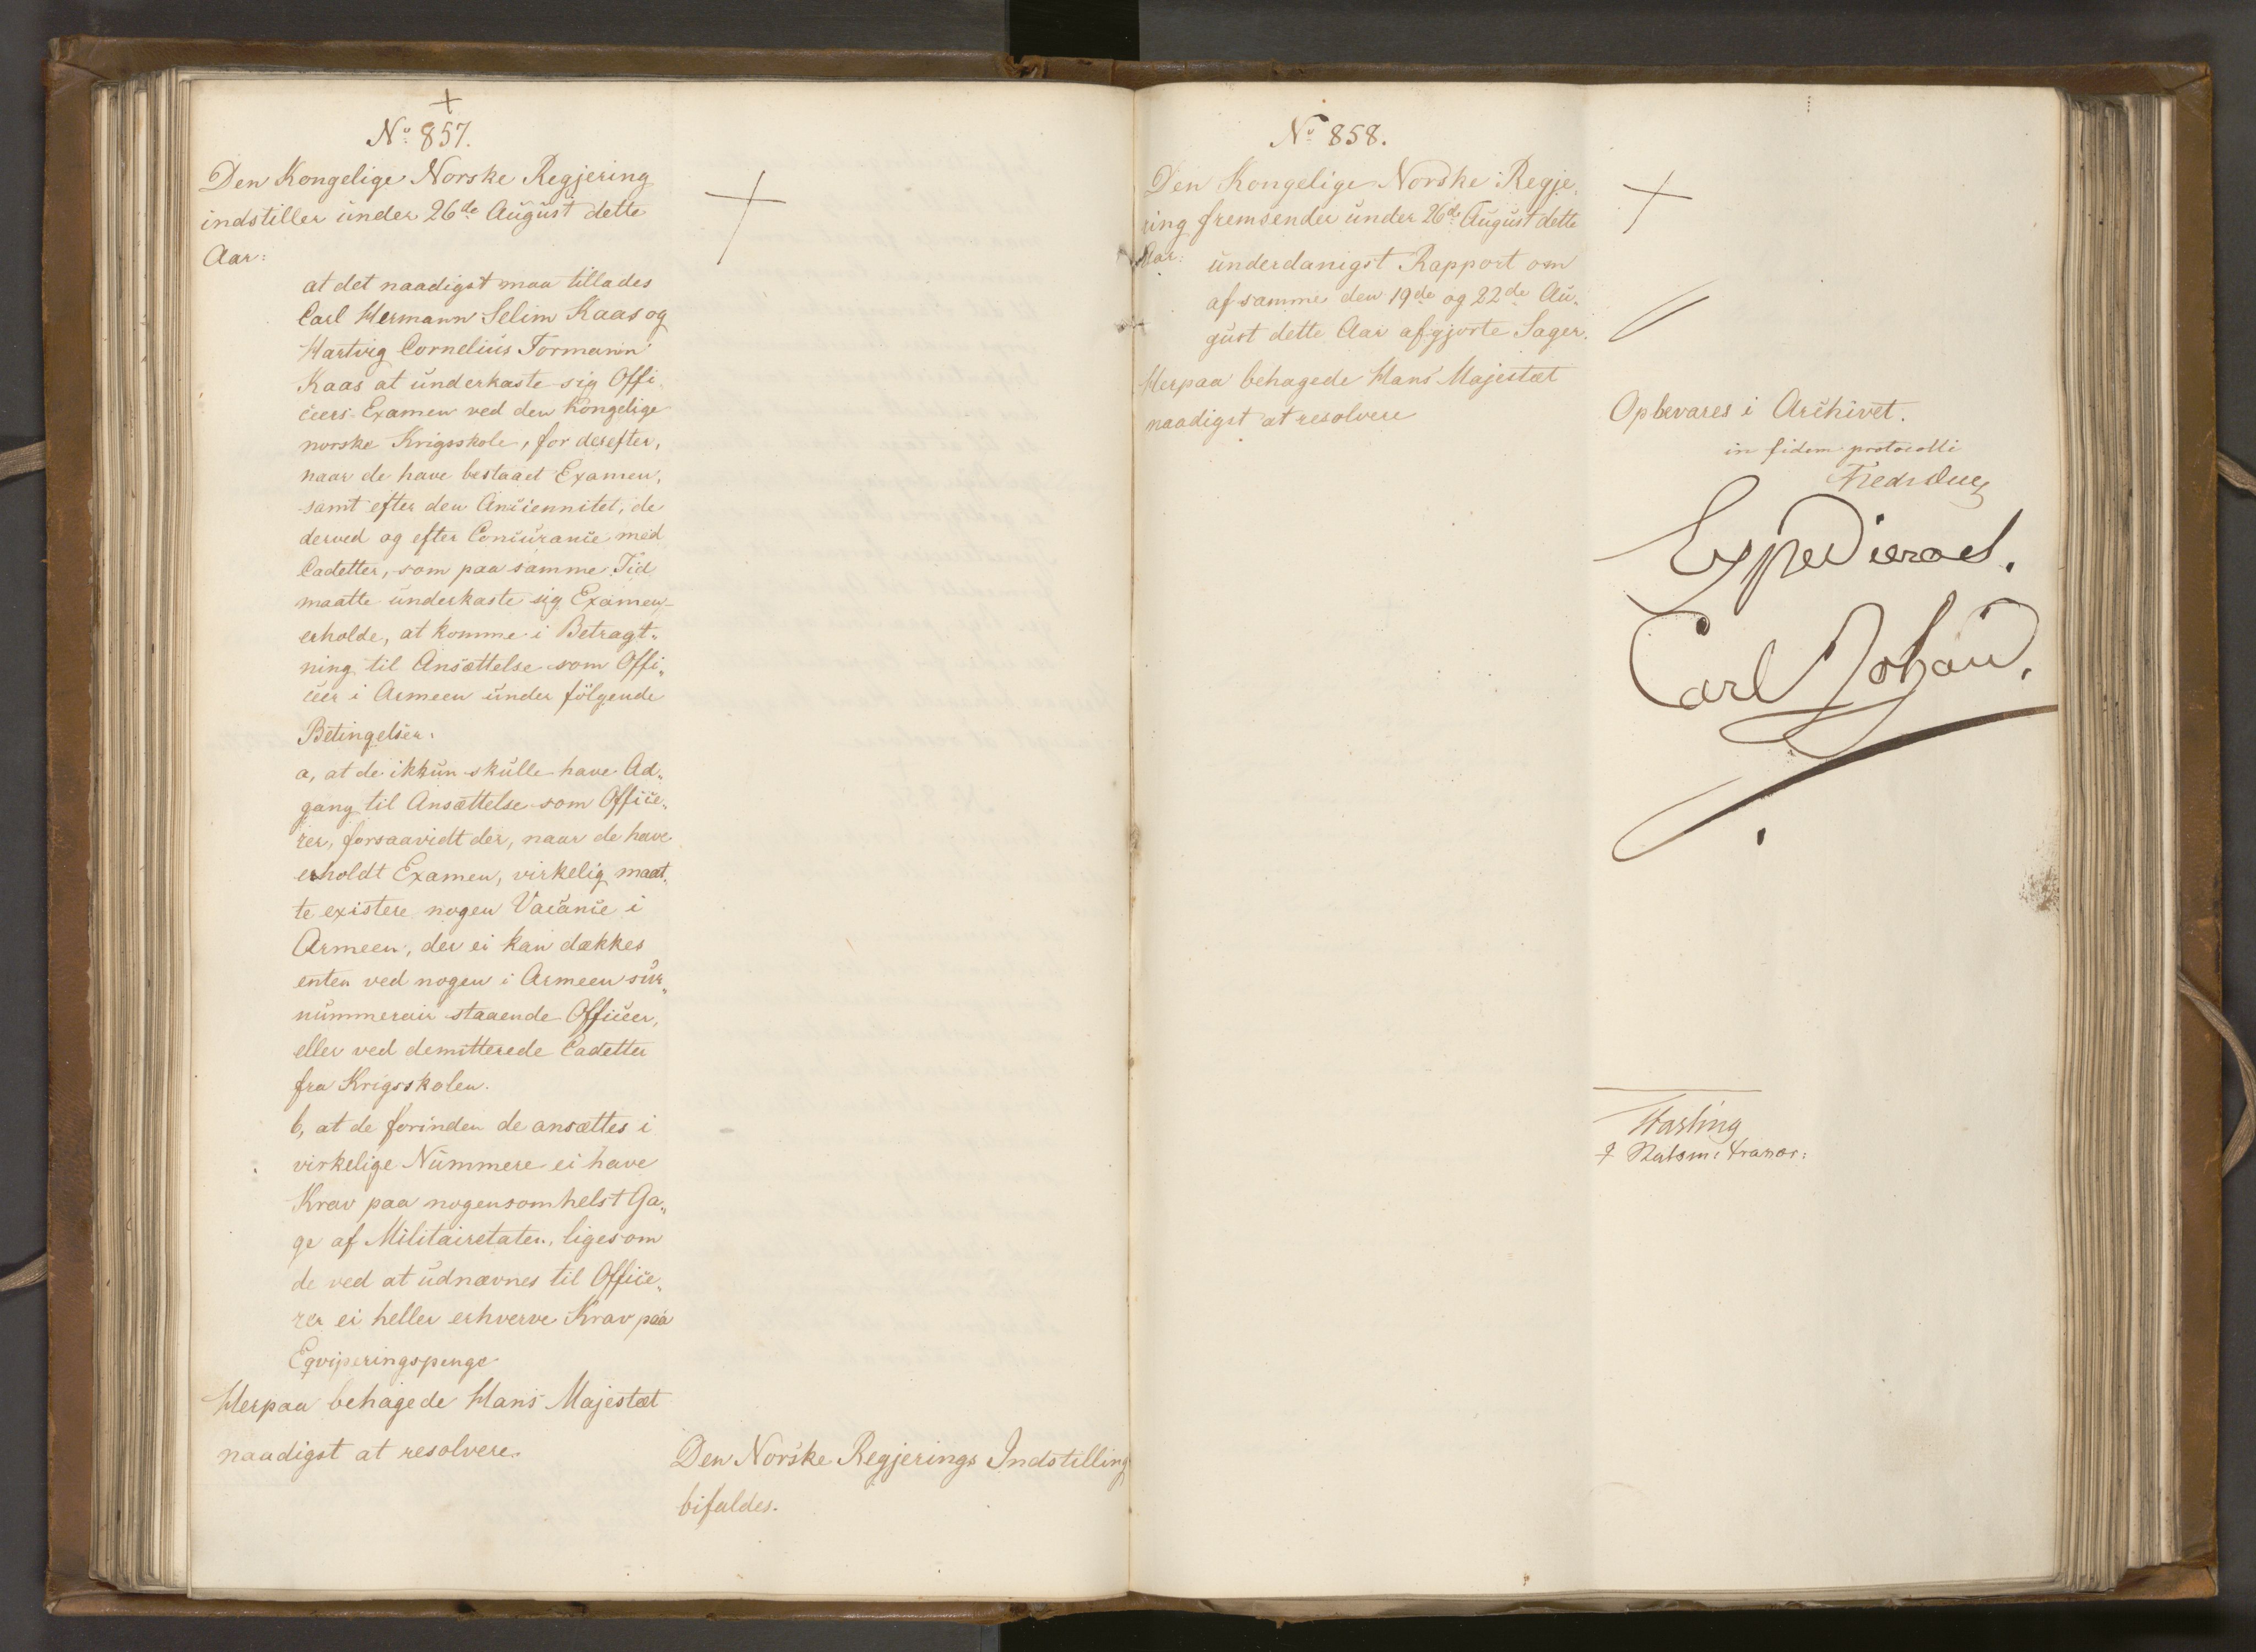 No. 857.
Den Kongelige Norske Regjering
indstiller under 26de August dette
Aar:
at det naadigst maa tillades
Carl Hermann Selim Kaas og
Hartvig Cornelius Tormann
Kaas at underkaste sig Offi-
ceers-Examen ved den kongelige
norske Krigsskole, for derefter,
naar de have bestaaet Examen,
samt efter den Anciennitet, de
derved og efter Concurance med
Cadetter, som paa samme Tid
maatte underkaste sig Examen
erholde, at komme i Betragt-
ning til Ansættelse som Offi-
ceer i Armeen under følgende
Betingelser:
a, at de ikkun skulle have Ad-
gang til Ansættelse som Office-
rer, forsaavidt der, naar de have
erholdt Examen, virkelig maat-
te existere nogen Vacance i
Armeen, der ei kan dækkes
enten ved nogen i Armeen sur-
nummerair staaende Officeer,
eller ved demitterede Cadetter
fra Krigsskolen.
b, at de forinden de ansættes i
virkelige Nummere ei have
Krav paa nogensomhelst Ga-
ge af Militairetaten, ligesom
de ved at udnævnes til Office-
rer ei heller erhverve Krav paa
Eqviperingspenge
Herpaa behagede Hans Majestæt
naadigst at resolvere
Den Norske Regjerings Indstilling
bifaldes.
No. 858.
Den Kongelige Norske Regje-
ring fremsender under 26de August dette
Aar:
underdanigst Rapport om
af samme den 19de og 22de Au-
gust dette Aar afgjorte Sager.
Herpaa behagede Hans Majestæt
naadigst at resolvere
Opbevares i Archivet.
in fidem protocolli
Fredr Due
Expederes.
Carl Johan.
Harling